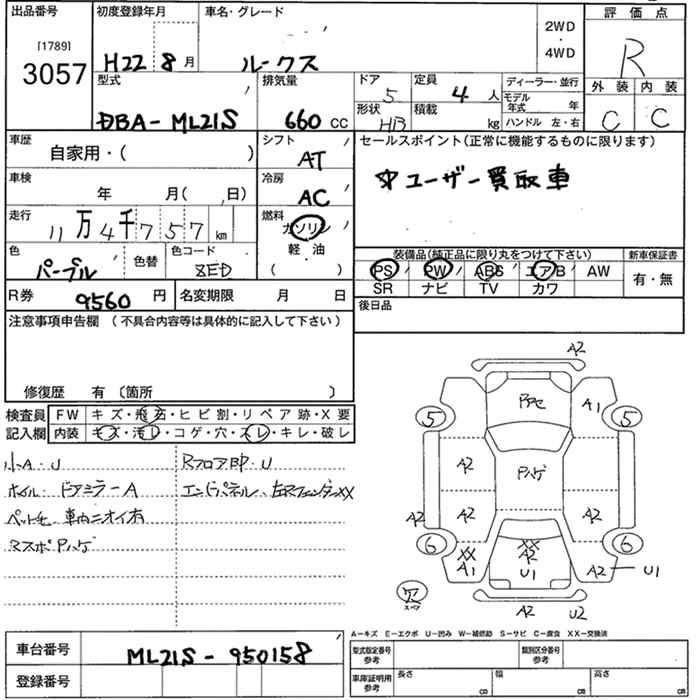 出品番号 初度登録年月 車名・グレード 評価点
[1789]
3057
H22 8月 ルークス 2WD・4WD R
型式 排気量 ドア 定員 ディーラー・並行 外装 内装
DBA-ML21S 660 CC 5 4 人 モデル年式 年 C C
形状 HB 積載 kg ハンドル 左・右
車歴 自家用・( ) シフト AT セールスポイント(正常に機能するものに限ります)
車検 年 月( 日) 冷房 AC ユーザー買取車
走行 11万4千757km 燃料 ガソリン
軽・油
( ・ )
色 パープル 色替 色コード ZED
装備品(純正品に限り丸をつけて下さい) 新車保証書
PS PW ABS エアB AW 有・無
SR ナビ TV カワ
R券 9560 円 名変期限 月 日 後日品
注意事項申告欄 (不具合内容等は具体的に記入して下さい)
修復歴 有 〔箇所 〕
検査員 FW キズ・飛石・ヒビ割・リペア跡・X要
記入欄 内装 キズ・汚レ・コゲ・穴・スレ・キレ・破レ
小A・U RフロアE卩・U
ホイル・ドアミラーA エンドパネル、左RフェンダーXX
ペット毛 車内ニオイ有
RスポPハゲ
A2
A1
5 5
A2 Pハゲ
A2 A2 A2
6 6
XX XX
A1 A2 A2 U1
U1
A2 U2
A-キズ E-エクボ U-凹み W-補修跡 S-サビ C-腐食 XX-交換済
車台番号 ML21S-950158
登録番号
型式指定番号 参考 類別区分番号 参考
車庫証明用 参考 長さ cm 幅 cm 高さ cm